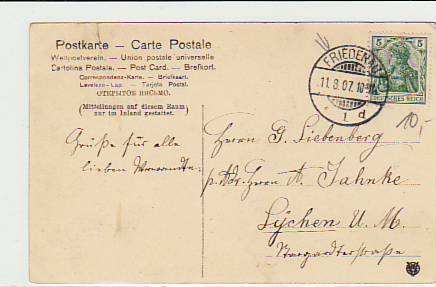 Postkarte – Carte Postale
Weltpostverein. – Union postale universelle
Cartolina Postale. – Post Card. – Brefkort.
Correspondenz-Karte. – Briefkaart.
Levelezo-Lap. – Tarjeta Postal.
ОТКРЫТОЕ ПИСЬМО.
(Mitteilungen auf diesem Raum
nur im Inland gestattet.)
Grüße für alle
lieben Verwandte.
FRIEDENAU
11.8.07. 10-
1 d
5 5
DEUTSCHES REICH
10,-
Herrn G. Liebenberg
p. Adr. Herrn A. Jahnke
Lychen U. M.
Stargardterstraße